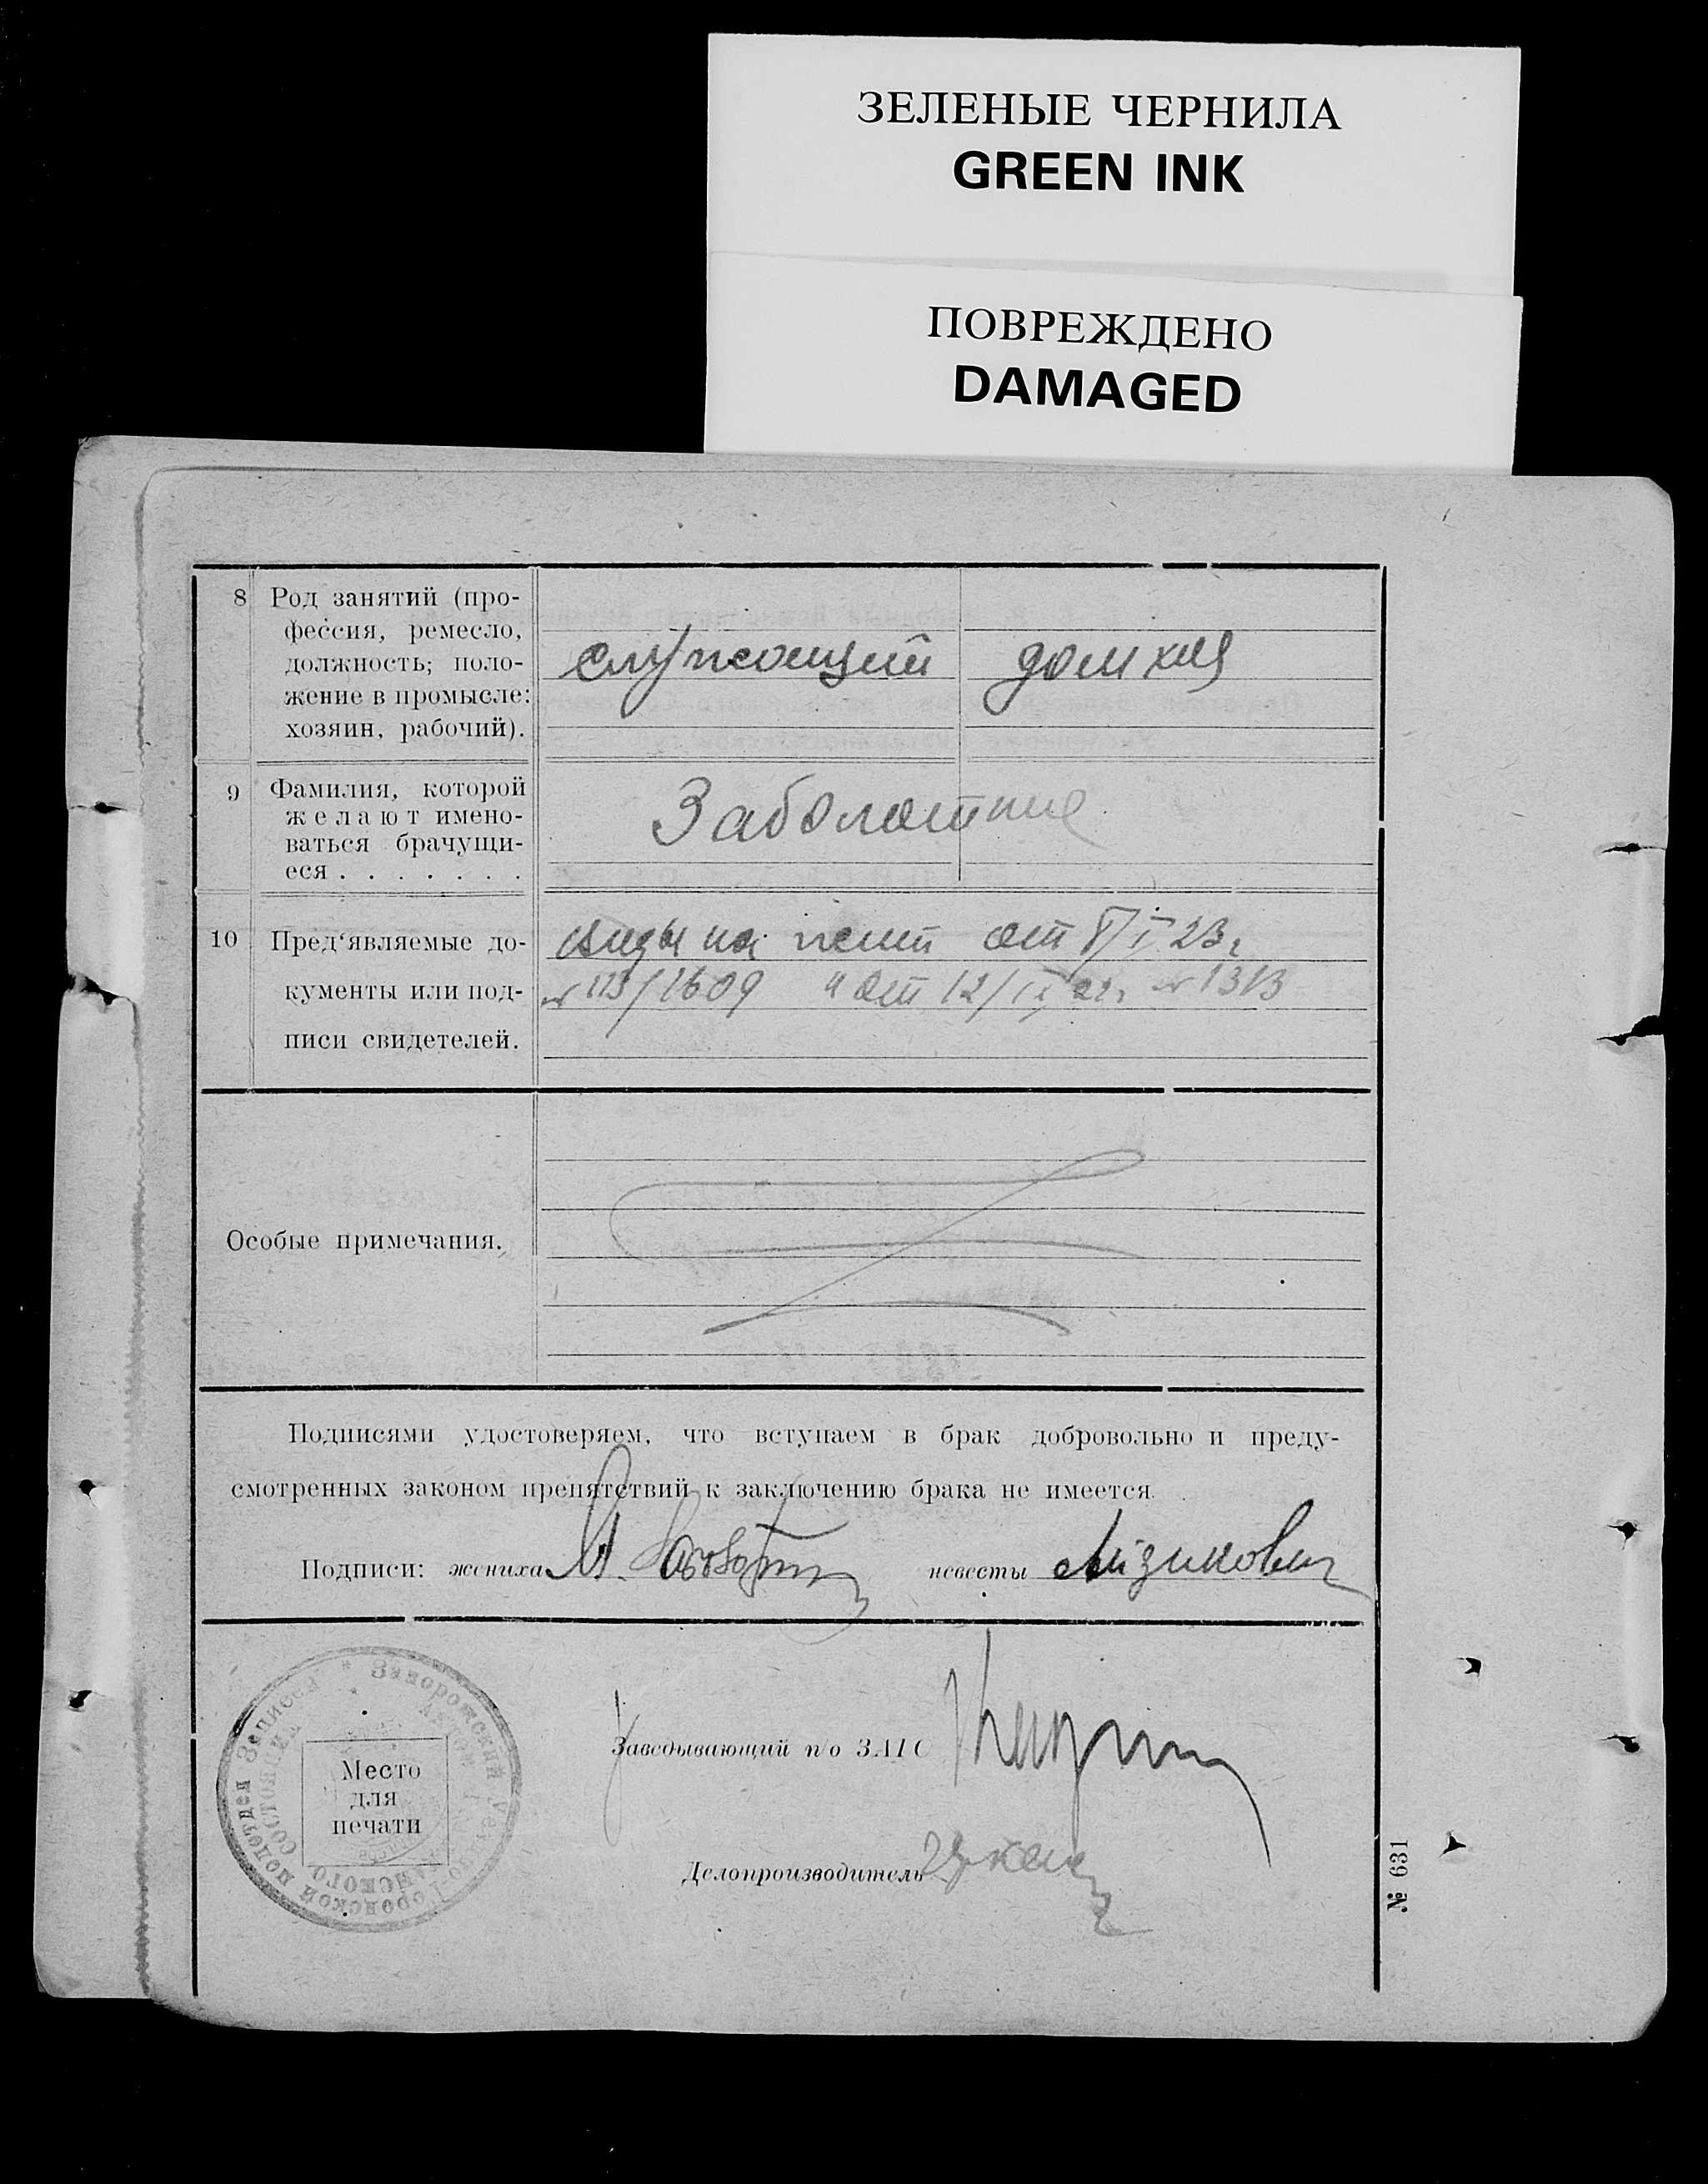 ЗЕЛЕНЫЕ ЧЕРНИЛА
GREEN INK
ПОВРЕЖДЕНО
DAMAGED
8 Род занятий (про-
фессия, ремесло,
должность; поло-
жение в промысле:
хозяин, рабочий).
служащий домхоз
9 Фамилия, которой
желают имено-
ваться брачущи-
еся . . . . . . .
Заболотние
10 Пред‘являемые до-
кументы или под-
писи свидетелей.
виды на жит от 8/I 23г
№ 113/1609 и от 12/IX 22г № 1313
Особые примечания.
Подписями удостоверяем, что вступаем в брак добровольно и преду-
смотренных законом препятствий к заключению брака не имеется.
Подписи: жениха невесты
Заведывающий п/о ЗАГС
Делопроизводитель
Место
для
печати
№ 631